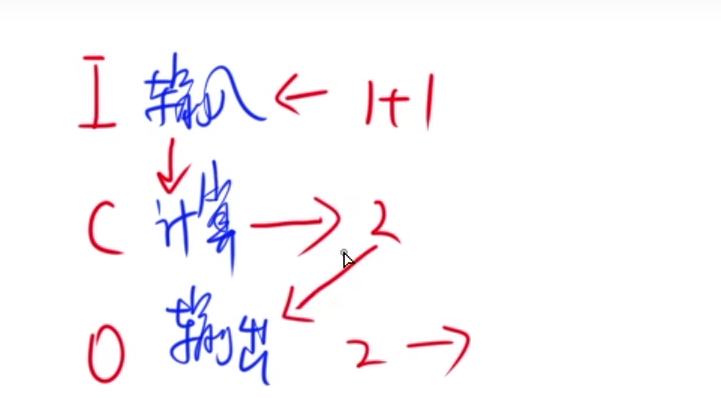 I 输入 ← 1+1
↓
C 计算 → 2
↙
O 输出 2 →